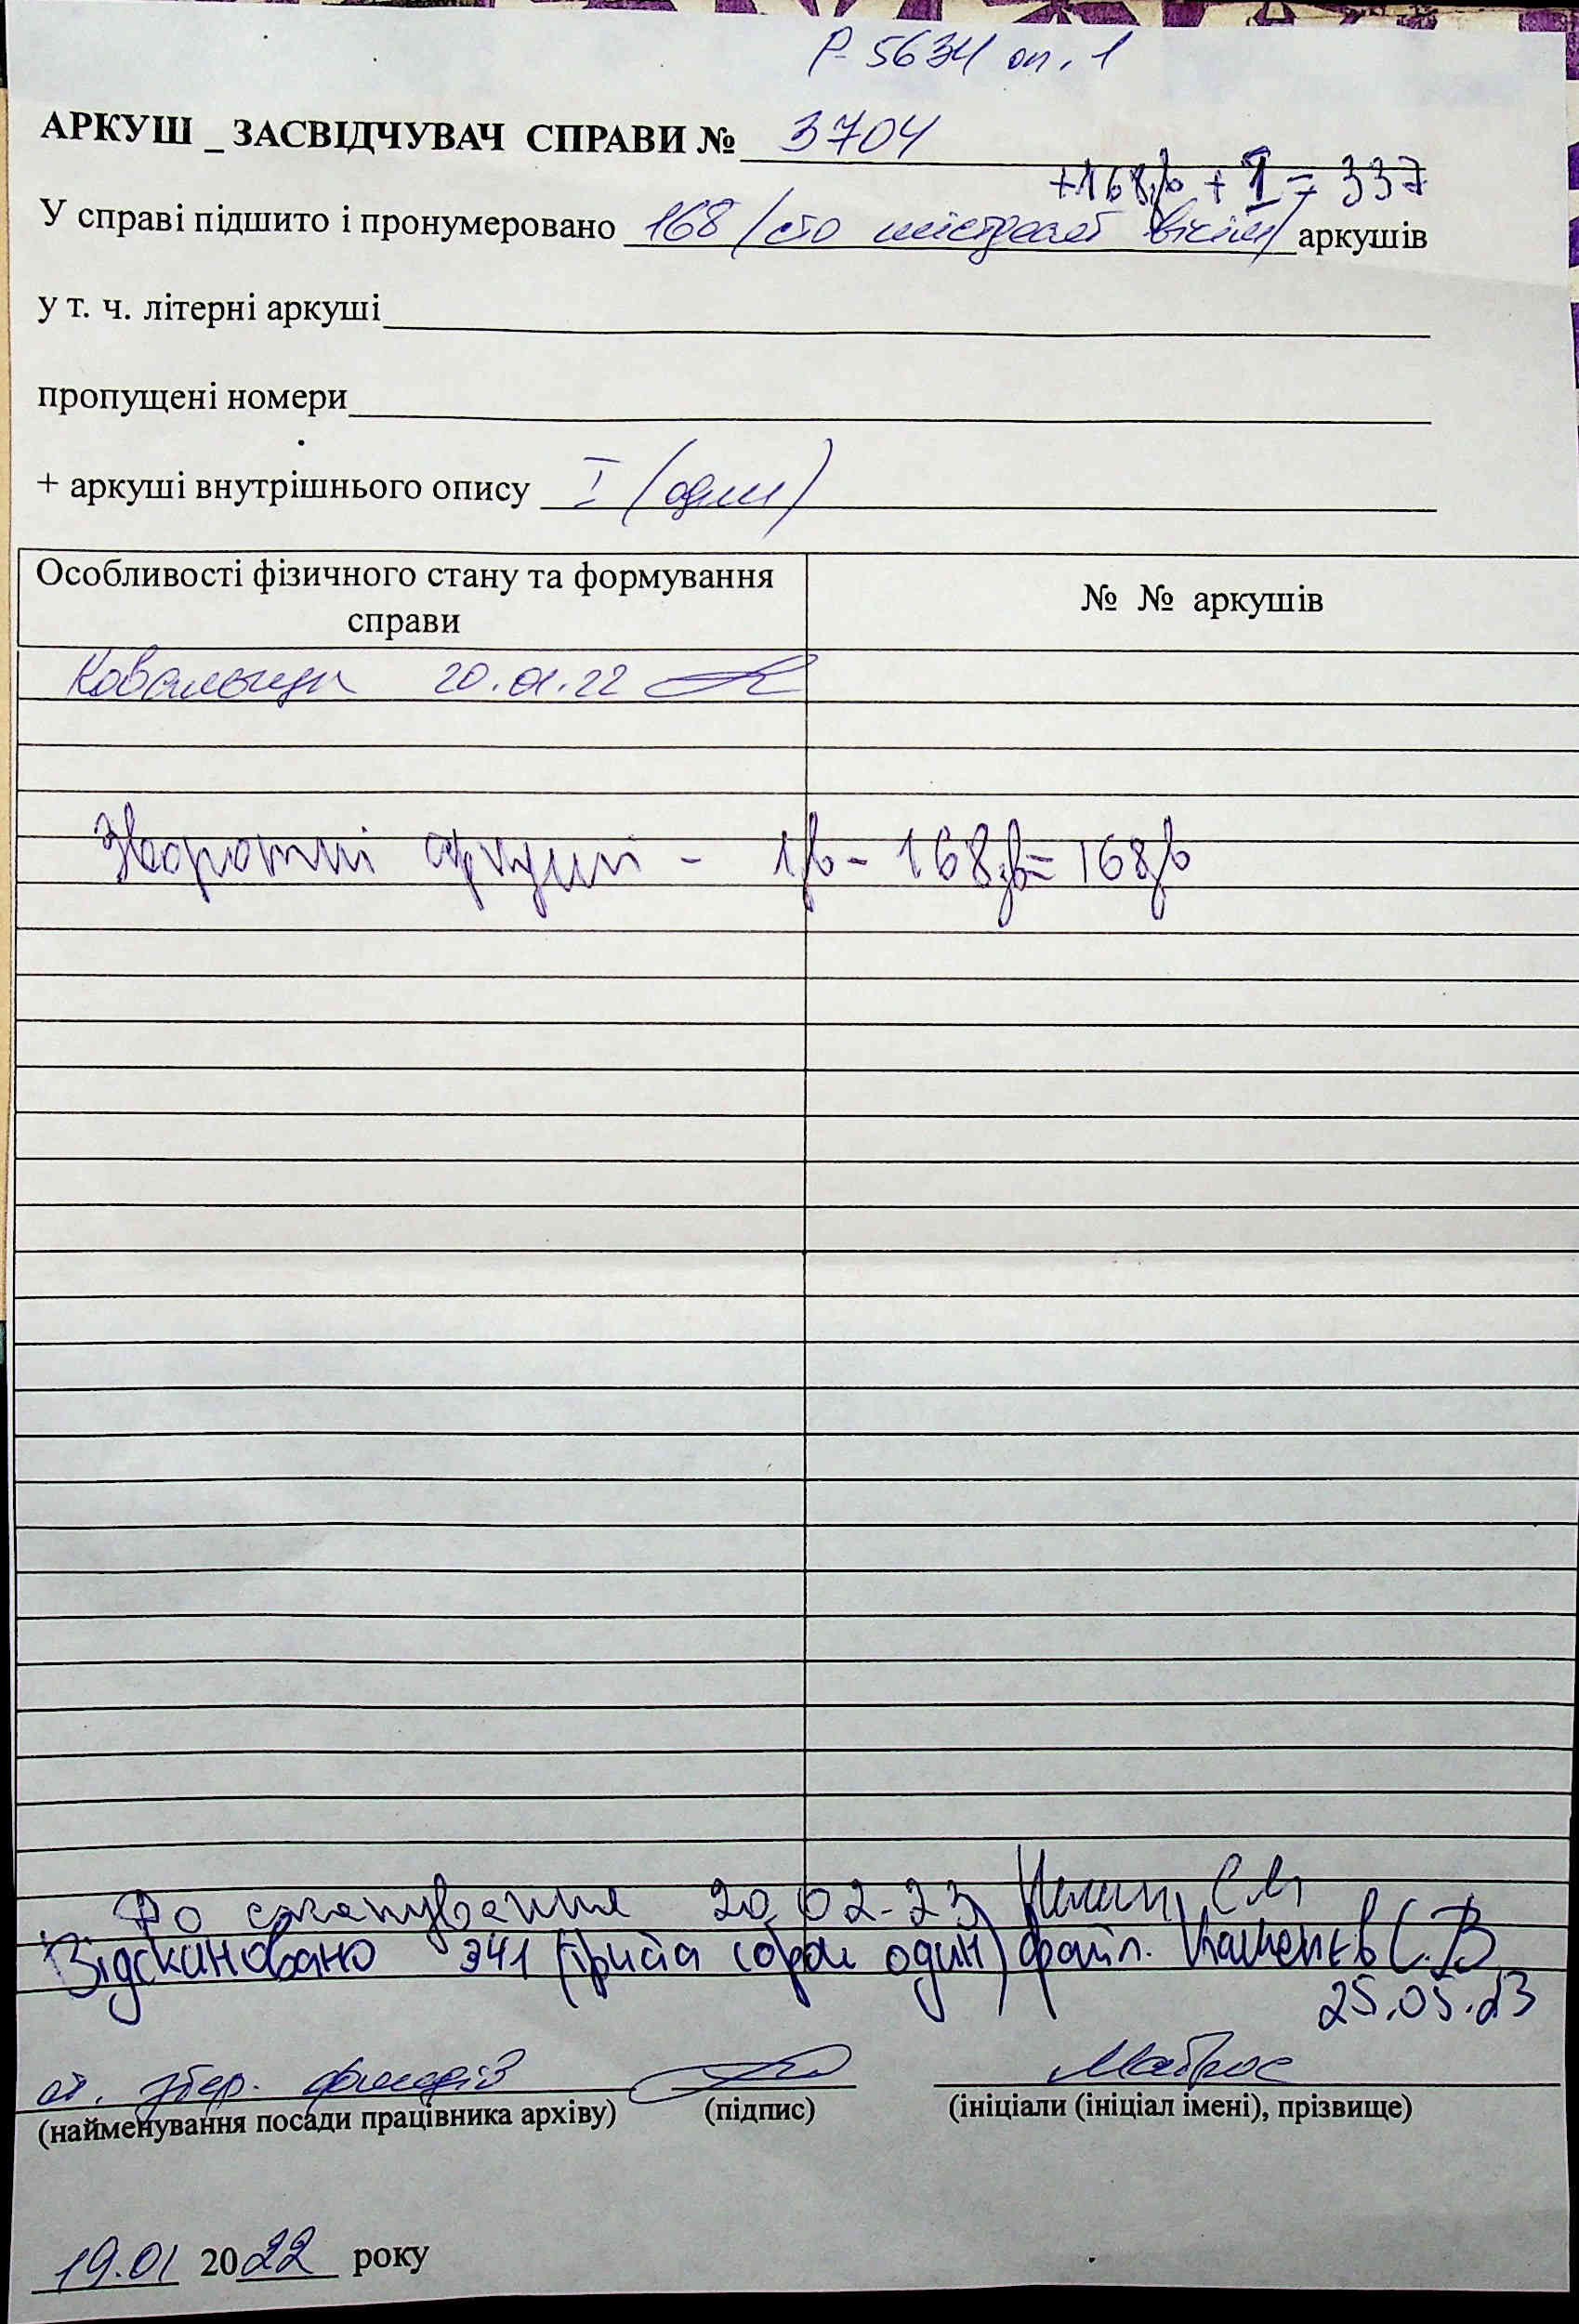 Р-5634 оп. 1
АРКУШ _ ЗАСВІДЧУВАЧ СПРАВИ № 3704
+168зв + 1 = 337
У справі підшито і пронумеровано 168 /сто шістдесят вісім/ аркушів
у т. ч. літерні аркуші
пропущені номери
+ аркуші внутрішнього опису I (один)
Особливості фізичного стану та формування справи
№ № аркушів
20.01.22
Зворотні аркуші - 1зв - 168зв = 168зв
До сканування 20.02-23
Відскановано 341 (триста сорок один) файл. С.В
25.05.23
ст. збер. фондів
(найменування посади працівника архіву) (підпис) (ініціали (ініціал імені), прізвище)
19.01 2022 року